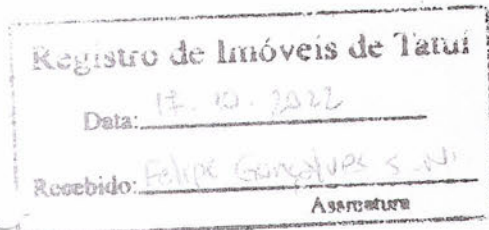 Registro de Imóveis de Tatuí
Data: 17.10.2022
Recebido: Felipe Gonçalves S.
Assinatura